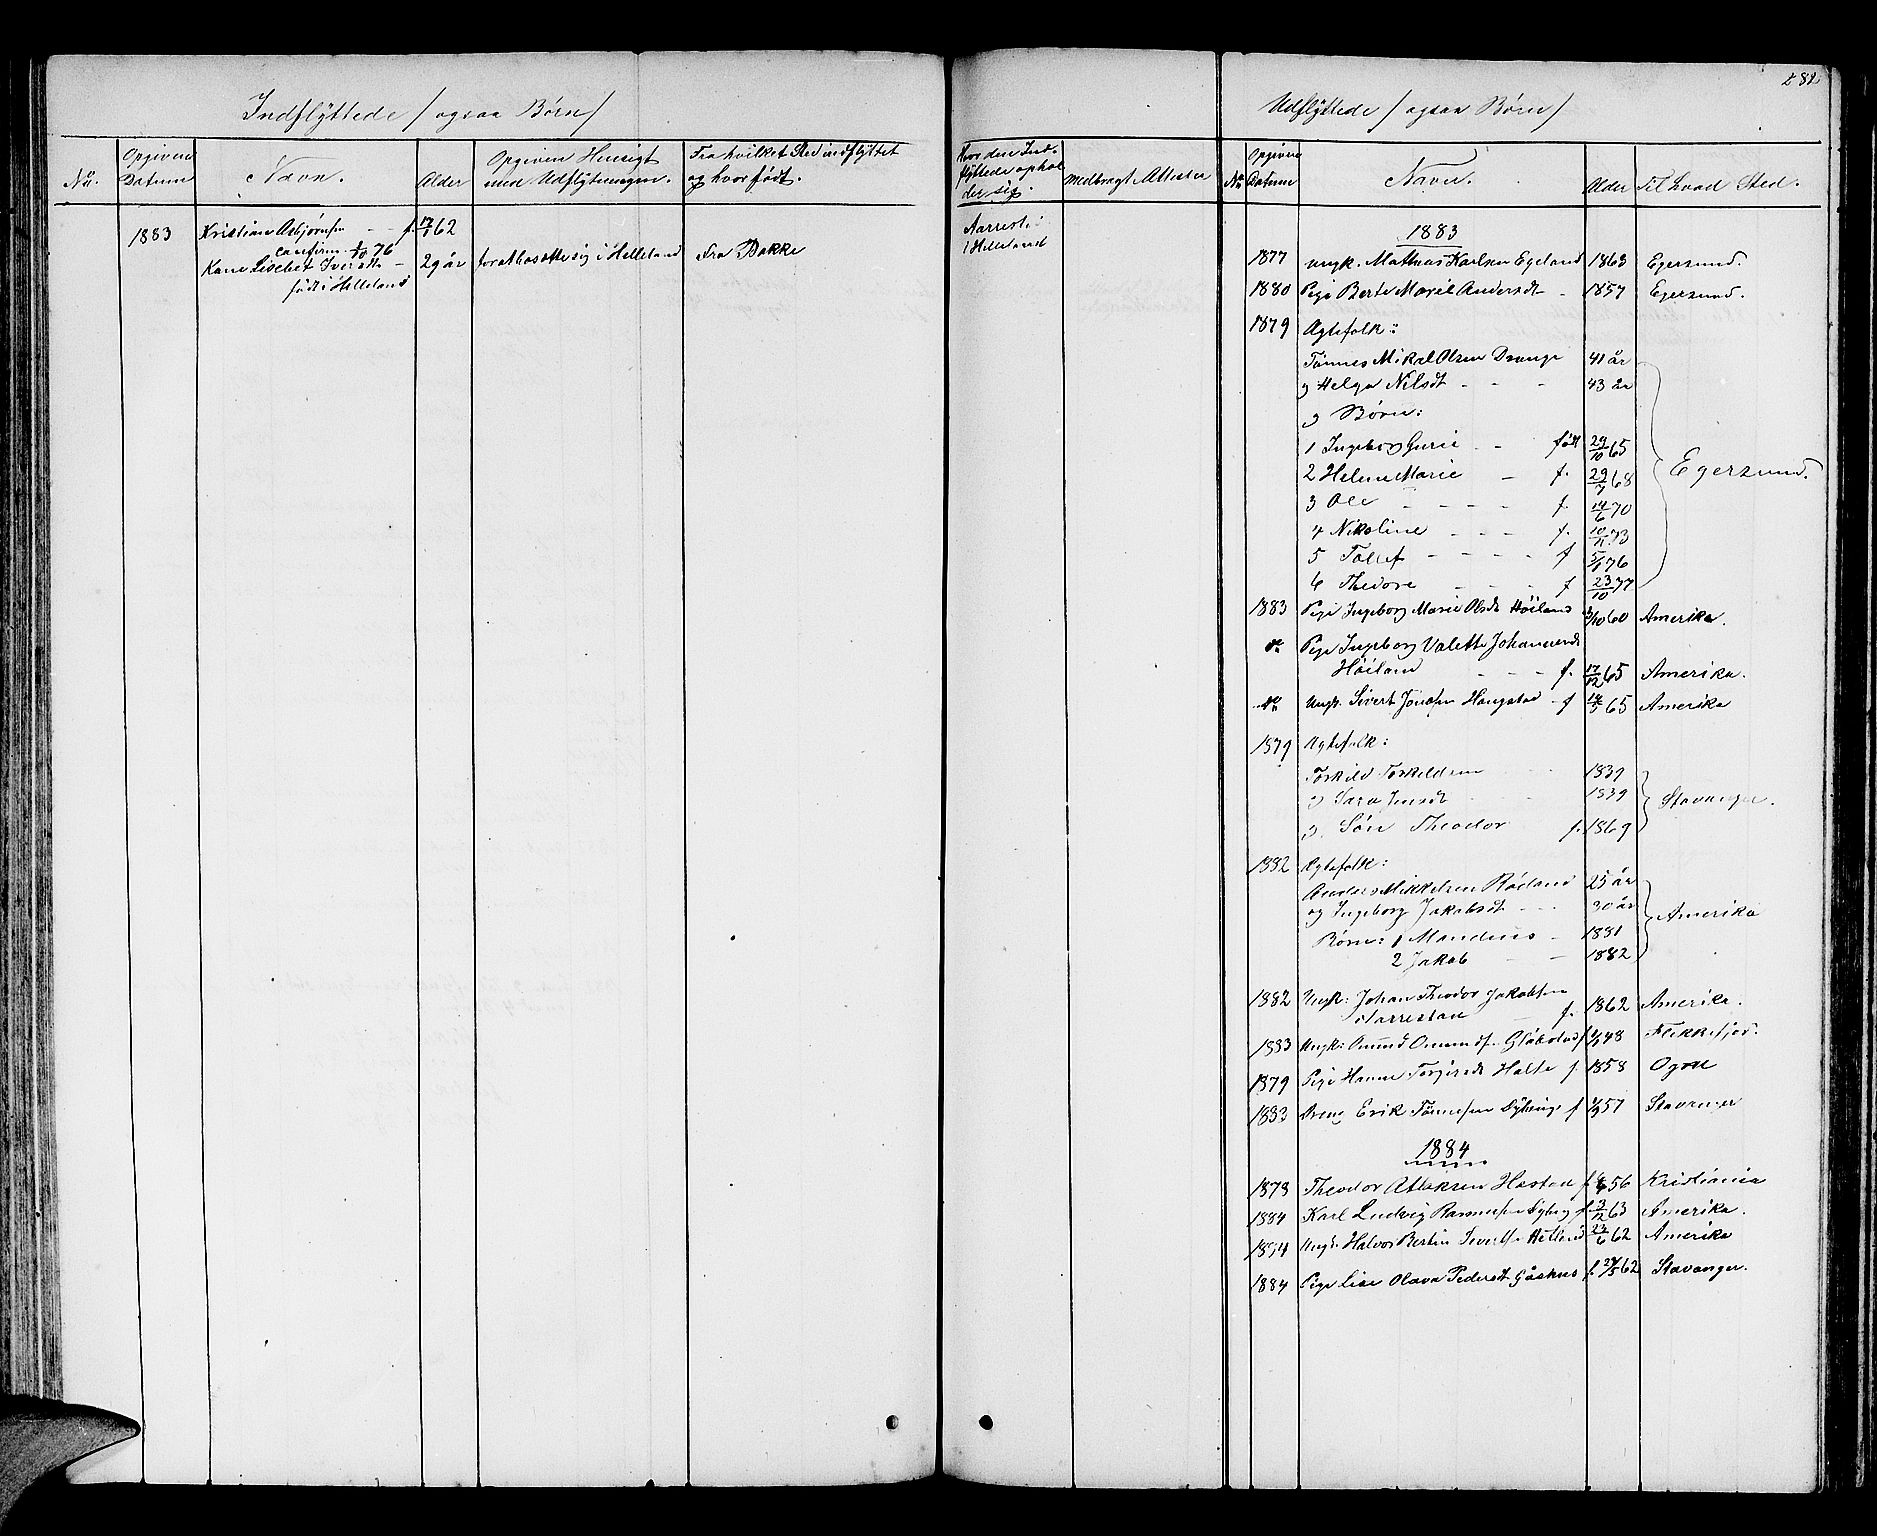 282
Indflyttede / ogsaa Børn /
No. Opgiven Datum Navn. Alder Opgiven Hensigt med Udflytningen. Fra hvilket Sted indflyttet og hvor født. Hvor den Indflyttede opholder sig. Medbragt Attester
1883 Kristian Asbjørnsen - - f. 17/1 62 Aarrestad
confirm. 1/10 76 i Helleland
Kane Lisebet Iversdtr - 29 år for at bosætte sig i Helleland Fra Bakke
født i Helleland
Udflyttede / ogsaa Børn /
No Opgiven Datum Navn. Alder Til hvad Sted.
1883
1877 ungk. Mathias Karlsen Egeland 1863 Egersund.
1880 Pige Berte Marie Andersdt - 1857 Egersund.
1879 Ægtefolk:
Tønnes Mikal Olsen Drange 41 år
og Helga Nilsdt - - - 43 år
og Børn:
1 Ingeborg Gurie - - født 29/10 65
2 Helene Marie - f. 29/7 68 Egersund.
3 Ole - - - - f. 14/6 70
4 Nikoline - - - f. 10/11 73
5 Tollef - - - - f 5/1 76
6 Thedore - - - f 23/10 77
1883 Pige Ingeborg Marie Olsdt Høiland 3/10 60 Amerika.
do Pige Ingeborg Valette Johannesdt
Høiland - - - f. 17/12 65 Amerika.
do Ungk. Sivert Jonassen Haugstad - f 14/5 65 Amerika
1879 Ægtefolk:
Torkild Torkildsen 1839
og Sara Jensdt 1839 Stavanger.
og Søn Theodor f. 1869
1882 Ægtefolk:
Anders Mikkelsen Rødland 25 år
og Ingeborg Jakobsdt - - - 30 år Amerika
Børn: 1 Mandius - 1881
2 Jakob - - 1882
1882 Ungk: Johan Theodor Jakobsen
Aarrestad - f. 1862 Amerika.
1883 Ungk: Omund Omunds. f 48 Flekkefjord.
1879 Pige Hanne Torgersdt f. 1858 Ogne
1883 Dreng Erik Tønnessen f 57 Stavanger
1884
1878 Theodor Atlaksen f 56 Kristiania
1884 Karl Ludvig Rasmussen f. 2/12 63 Amerika.
1884 Ungk. Halvor Bertin Sivertsen Hetland 23/6 62 Amerika
1884 Pige Lise Olava Pedersdt f. 27/5 62 Stavanger.